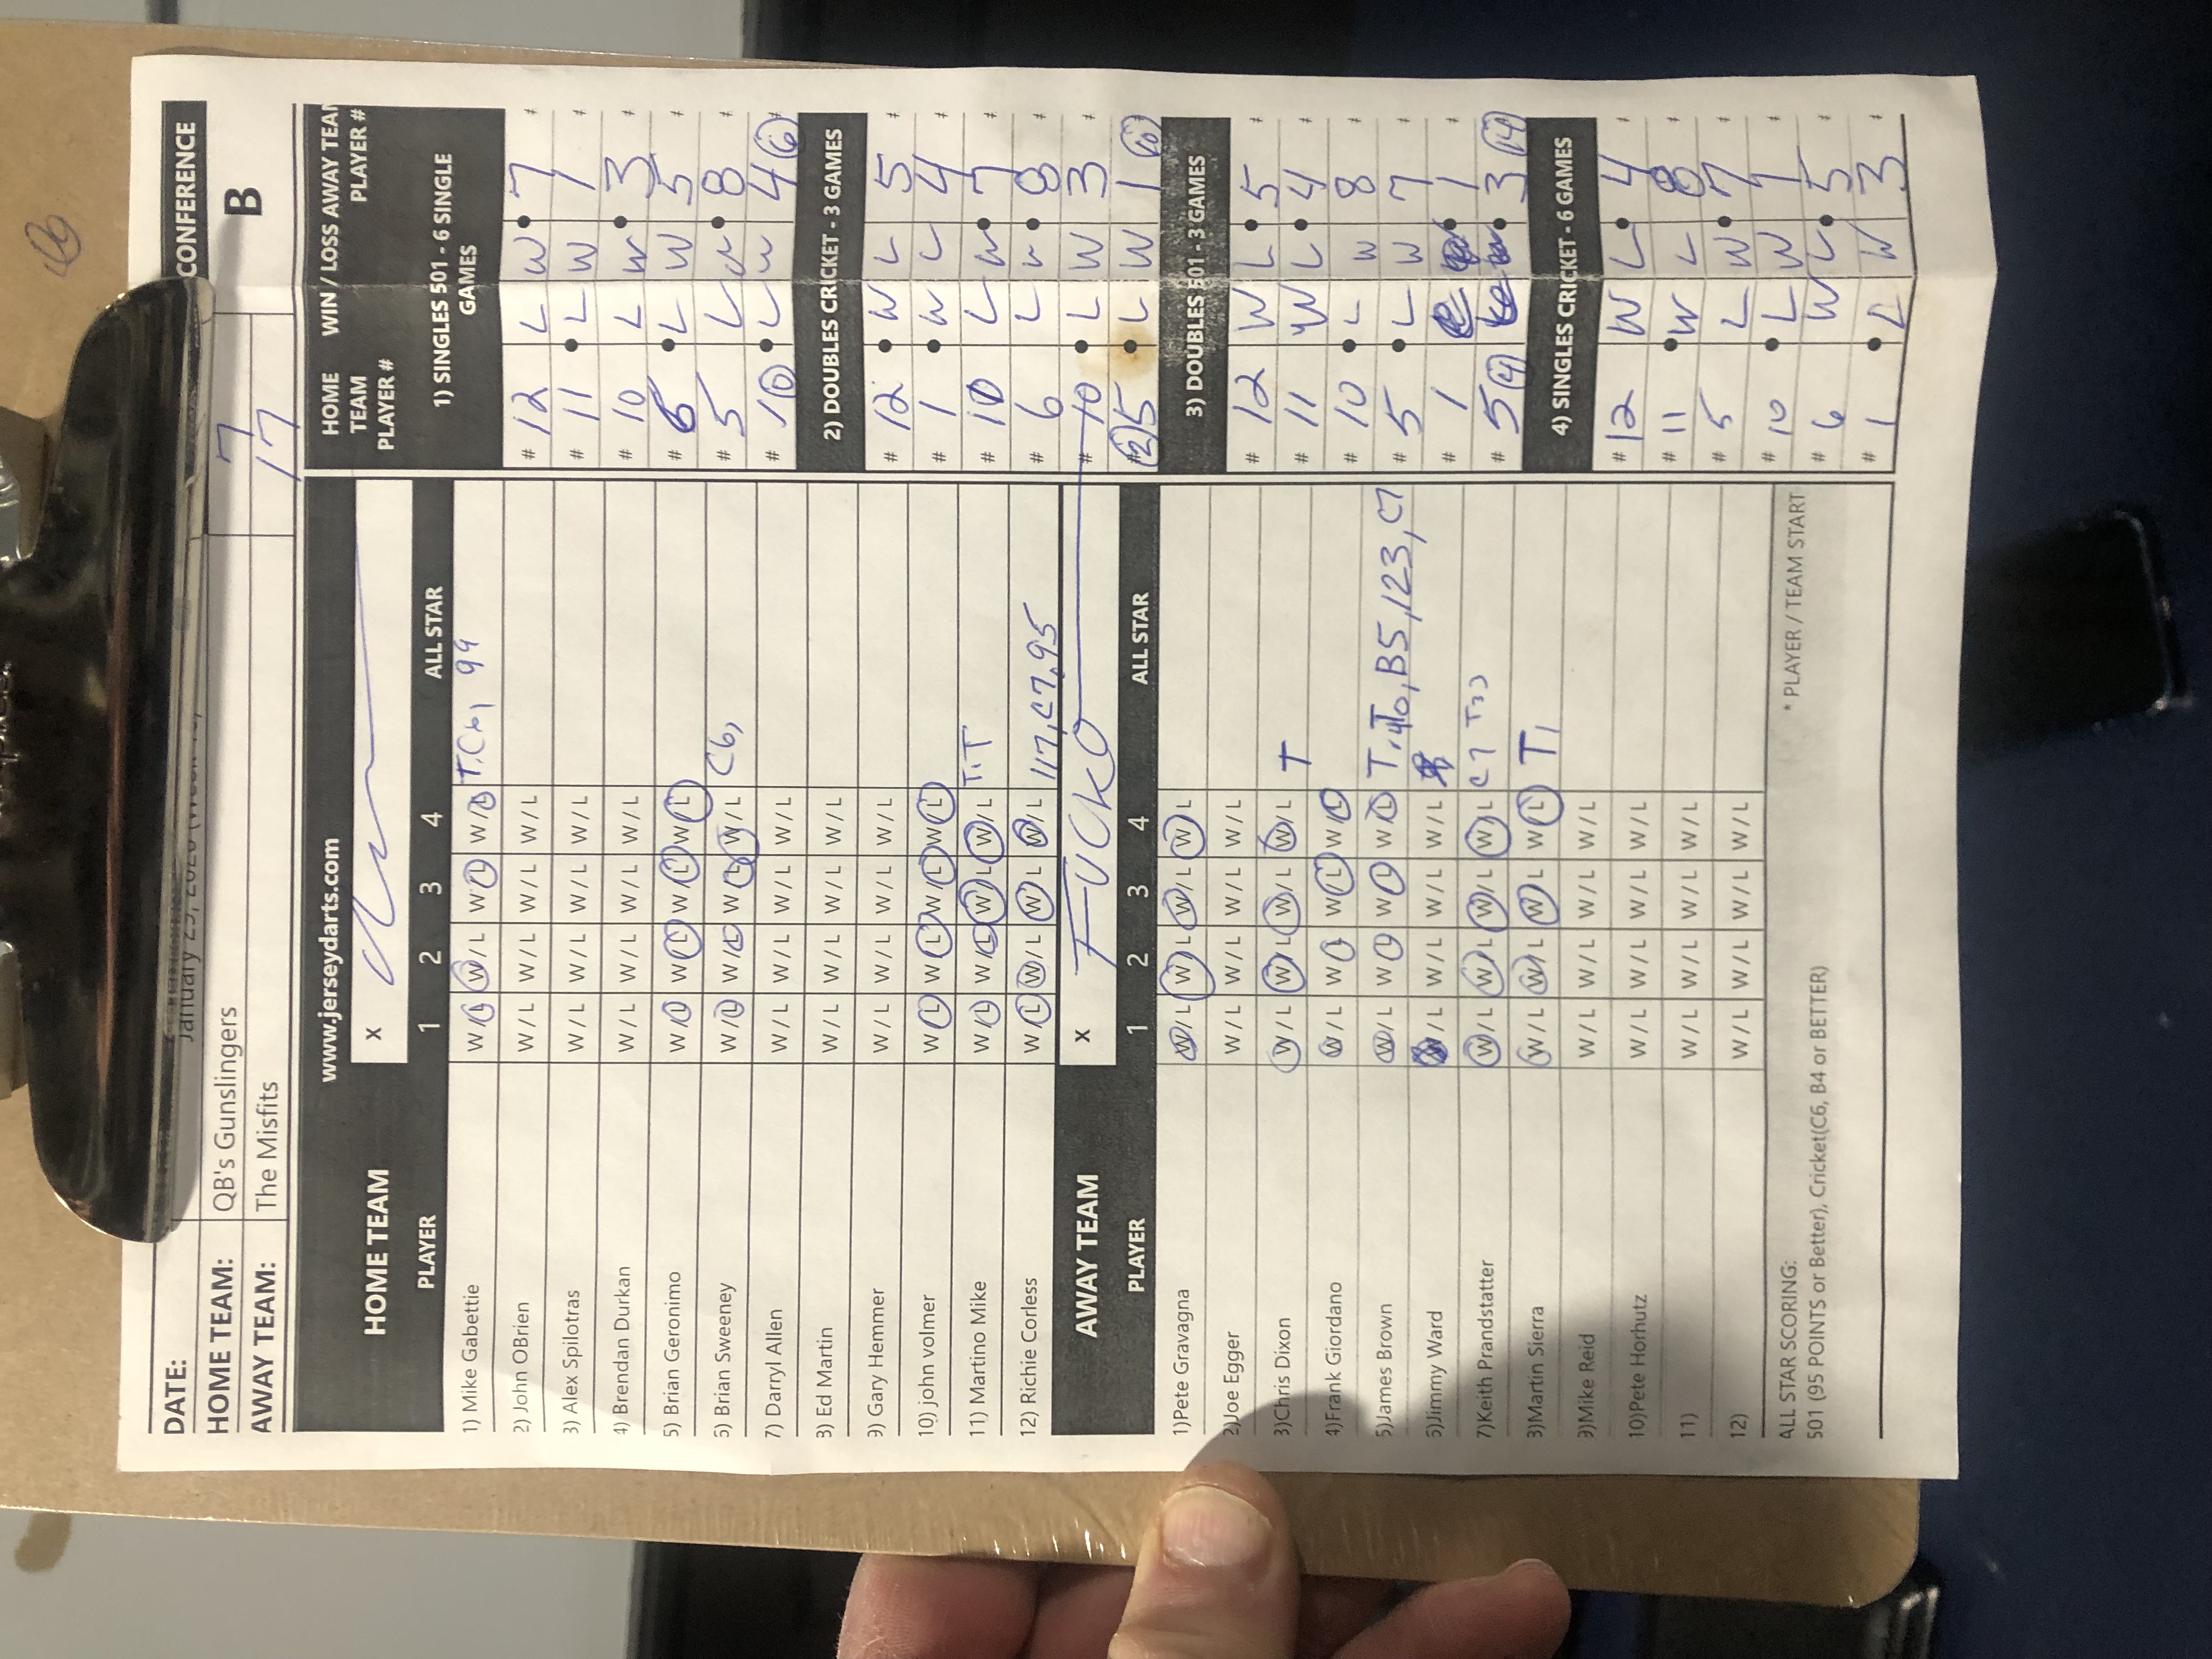 CONFERENCE
B
DATE:
HOME TEAM: QB's Gunslingers 7
AWAY TEAM: The Misfits 17
www.jerseydarts.com
HOME TEAM X
PLAYER 1 2 3 4 ALL STAR
1) Mike Gabettie W/L W/L W/L W/L T, C6, 99
2) John OBrien W/L W/L W/L W/L
3) Alex Spilotras W/L W/L W/L W/L
4) Brendan Durkan W/L W/L W/L W/L
5) Brian Geronimo W/L W/L W/L W/L
6) Brian Sweeney W/L W/L W/L W/L C6,
7) Darryl Allen W/L W/L W/L W/L
8) Ed Martin W/L W/L W/L W/L
9) Gary Hemmer W/L W/L W/L W/L
10) john volmer W/L W/L W/L W/L
11) Martino Mike W/L W/L W/L W/L T, T
12) Richie Corless W/L W/L W/L W/L 117, C7, 95
AWAY TEAM X FUCKO
PLAYER 1 2 3 4 ALL STAR
1)Pete Gravagna W/L W/L W/L W/L
2)Joe Egger W/L W/L W/L W/L
3)Chris Dixon W/L W/L W/L W/L T
4)Frank Giordano W/L W/L W/L W/L
5)James Brown W/L W/L W/L W/L B5, 123, C7
6)Jimmy Ward W/L W/L W/L W/L
7)Keith Prandstatter W/L W/L W/L W/L C7
8)Martin Sierra W/L W/L W/L W/L T1
9)Mike Reid W/L W/L W/L W/L
10)Pete Horhutz W/L W/L W/L W/L
11) W/L W/L W/L W/L
12) W/L W/L W/L W/L
ALL STAR SCORING: * PLAYER / TEAM START
501 (95 POINTS or Better), Cricket(C6, B4 or BETTER)
HOME TEAM PLAYER # WIN / LOSS AWAY TEAM PLAYER #
1) SINGLES 501 - 6 SINGLE GAMES
# 12 L W 7
# 11 L W 1
# 10 L W 3
# 6 L W 5
# 5 L W 8
# 1 (0) L W 4 (6)
2) DOUBLES CRICKET - 3 GAMES
# 12 W L 5
# 1 W L 4
# 10 L W 7
# 6 L W 8
# 10 L W 3
# (2) 5 L W 1 (10)
3) DOUBLES 501 - 3 GAMES
# 12 W L 5
# 11 W L 4
# 10 L W 8
# 5 L W 7
# 1 1
# 5 (4) 3 (14)
4) SINGLES CRICKET - 6 GAMES
# 12 W L 4
# 11 W L 8
# 5 L W 7
# 10 L W 1
# 6 W L 5
# 1 L W 3